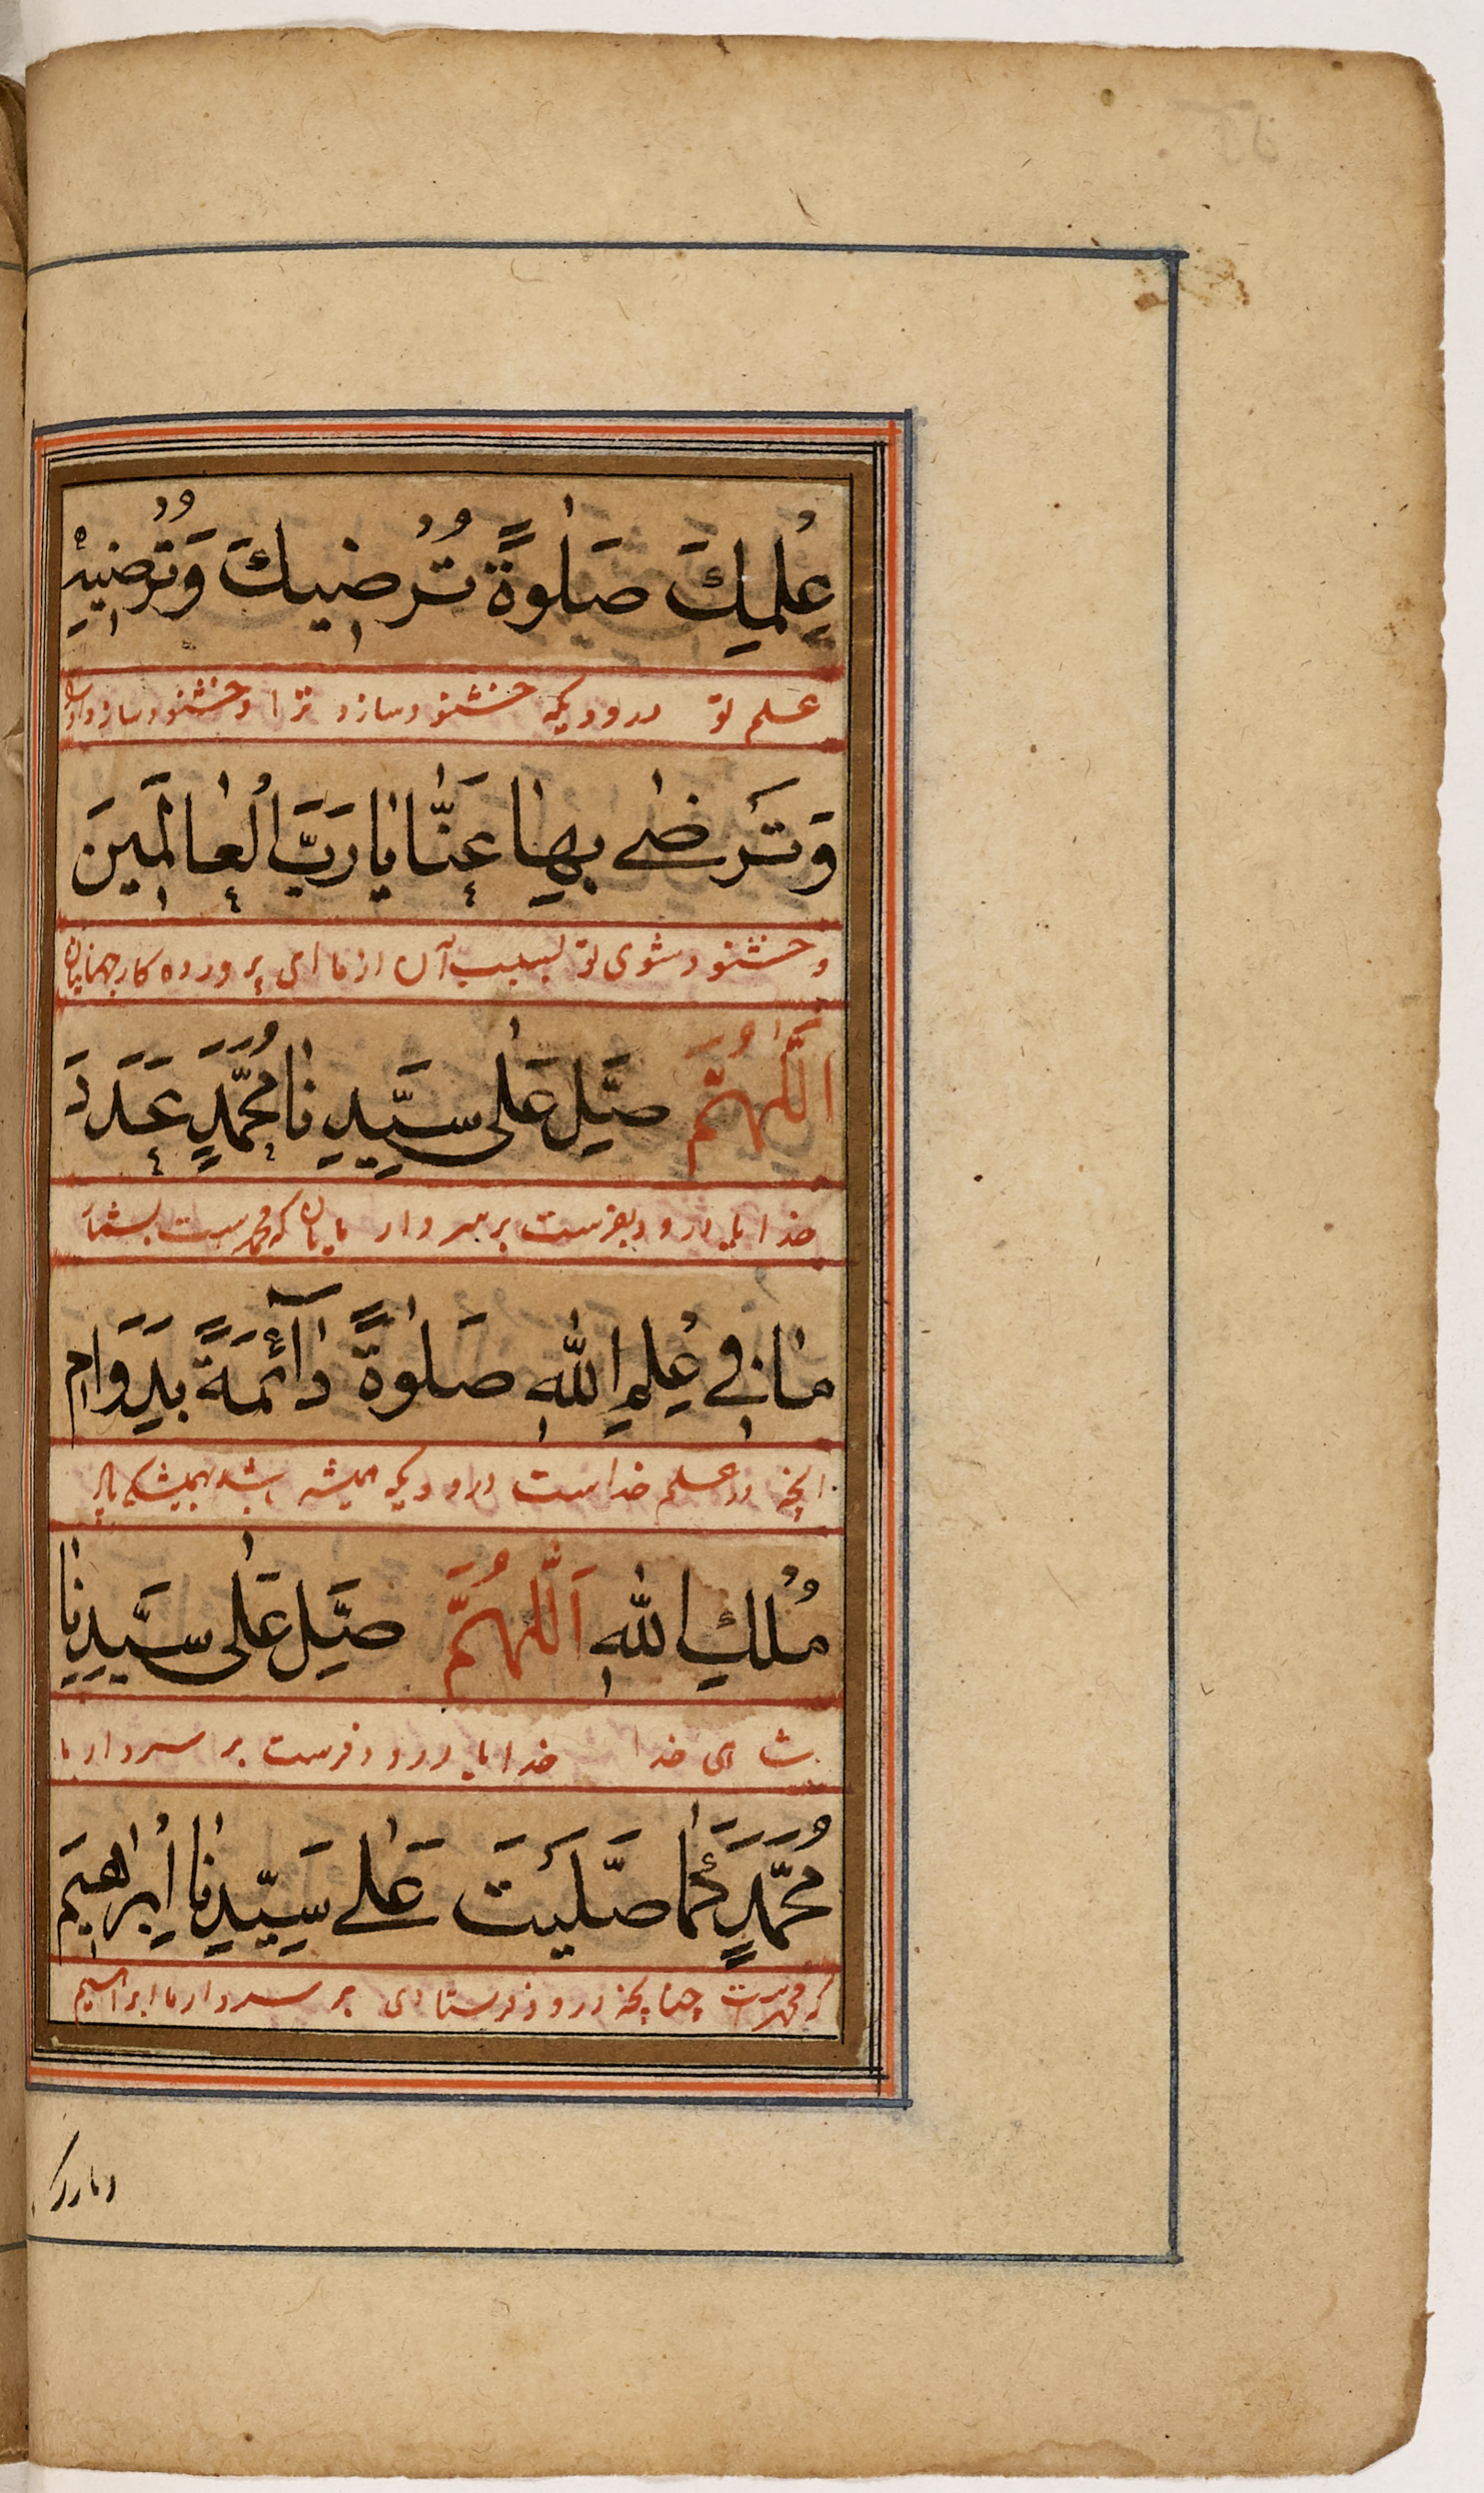 عِلْمِكَ صَلٰوةً تُرْضِيكَ وَتُرْضِيهِ
علم تو درودیکه خشنود سازد ترا و خشنود سازد او را
وَتَرْضٰى بِهَا عَنَّا يَا رَبَّ الْعَالَمِينَ
و خشنود شوی تو بسبب آن از ما ای پروردکار جهانیان
اَللّٰهُمَّ صَلِّ عَلٰى سَيِّدِنَا مُحَمَّدٍ عَدَدَ
خدایا درود بفرست بر سردار مایان که محمدست بشمار
مَا فِي عِلْمِ اللّٰهِ صَلٰوةً دَآئِمَةً بِدَوَامِ
آنچه در علم خداست درودیکه همیشه باشد بهمیشکی
مُلْكِ اللّٰهِ اَللّٰهُمَّ صَلِّ عَلٰى سَيِّدِنَا
شاهی خدا خدایا درود فرست بر سردار ما
مُحَمَّدٍ كَمَا صَلَّيْتَ عَلٰى سَيِّدِنَا اِبْرٰهِيمَ
که محمدست چنانچه درود فرستادی بر سردار ما ابراهیم
وبارك